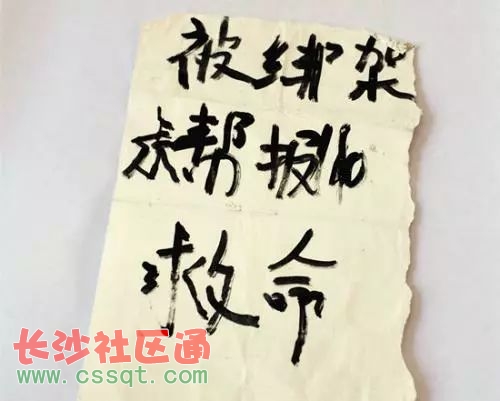 被绑架
求帮报110
救命
长沙社区通
www.cssqt.com